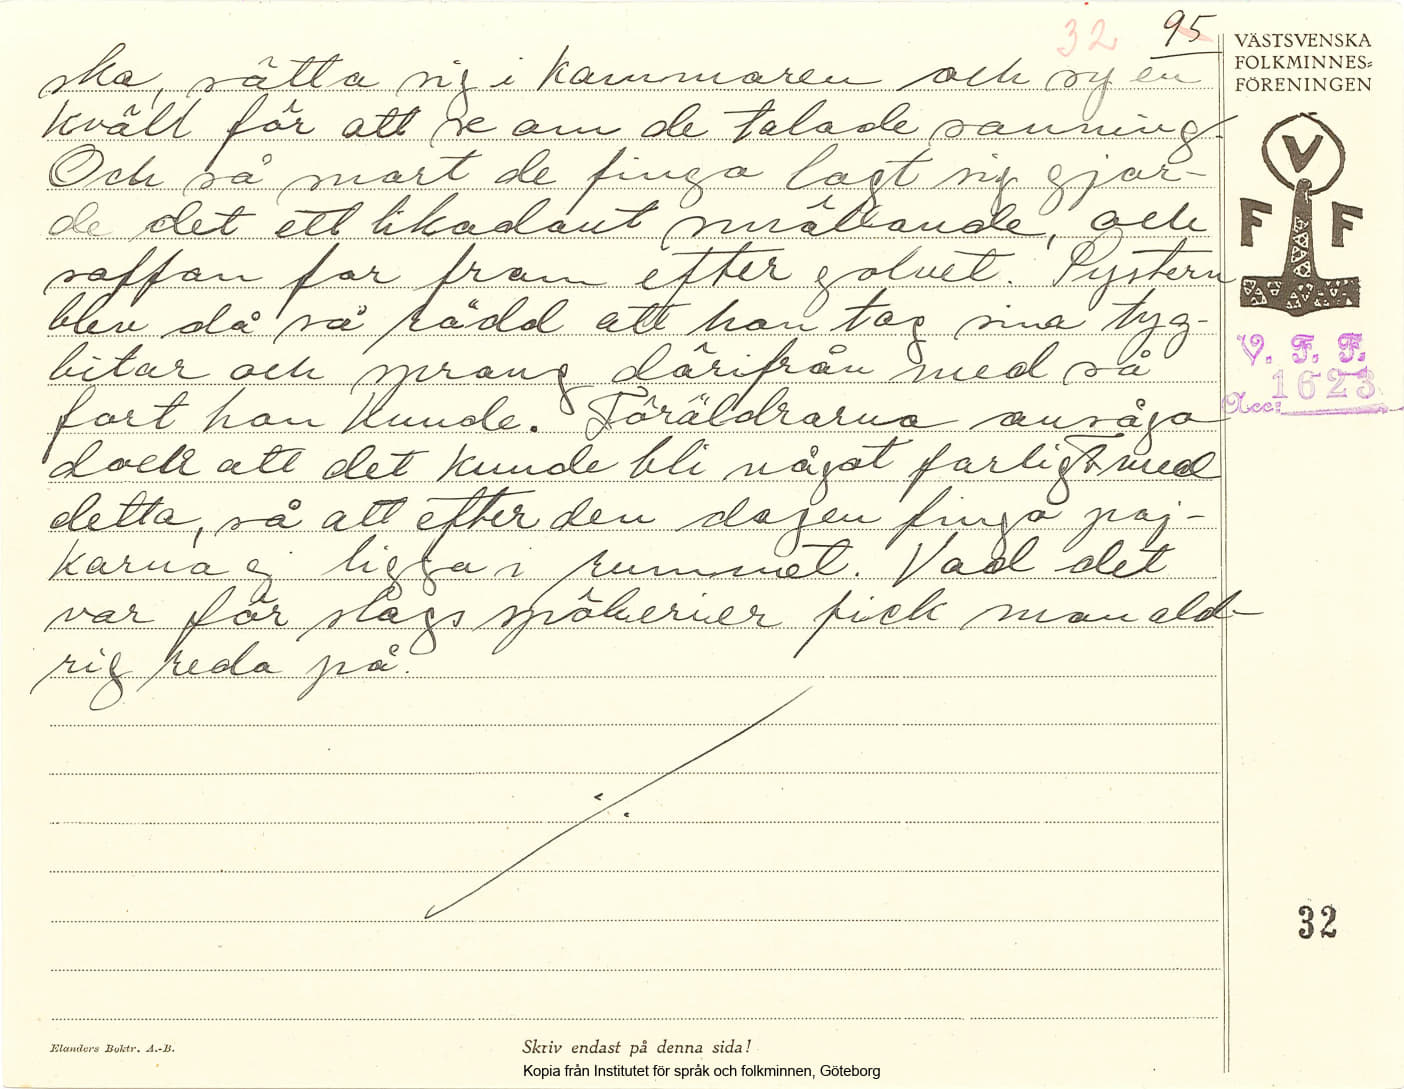 32 95
VÄSTSVENSKA
FOLKMINNES=
FÖRENINGEN
V
F F
V. F. F.
Acc: 1623
ska, sätta sig i kammaren och sy en
kväll för att se om de talade sanning.
Och så snart de fingo lagt sig gjor-
de det ett likadant smällande, och
soffan for fram efter golvet. Pystern
blev då så rädd att han tog sina tyg-
bitar och sprang därifrån med så
fort han kunde. Föräldrarna ansågo
dock att det kunde bli något farligt med
detta, så att efter den dagen fingo poj-
karna ej ligga i rummet. Vad det
var för slags spökerier fick man ald-
rig reda på.
32
Elanders Boktr. A.-B.
Skriv endast på denna sida!
Kopia från Institutet för språk och folkminnen, Göteborg